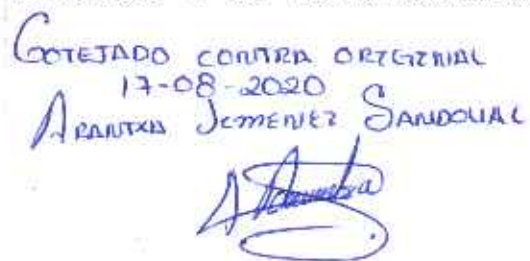 COTEJADO CONTRA ORIGINAL
17-08-2020
ARANTXA JIMENEZ SANDOVAL